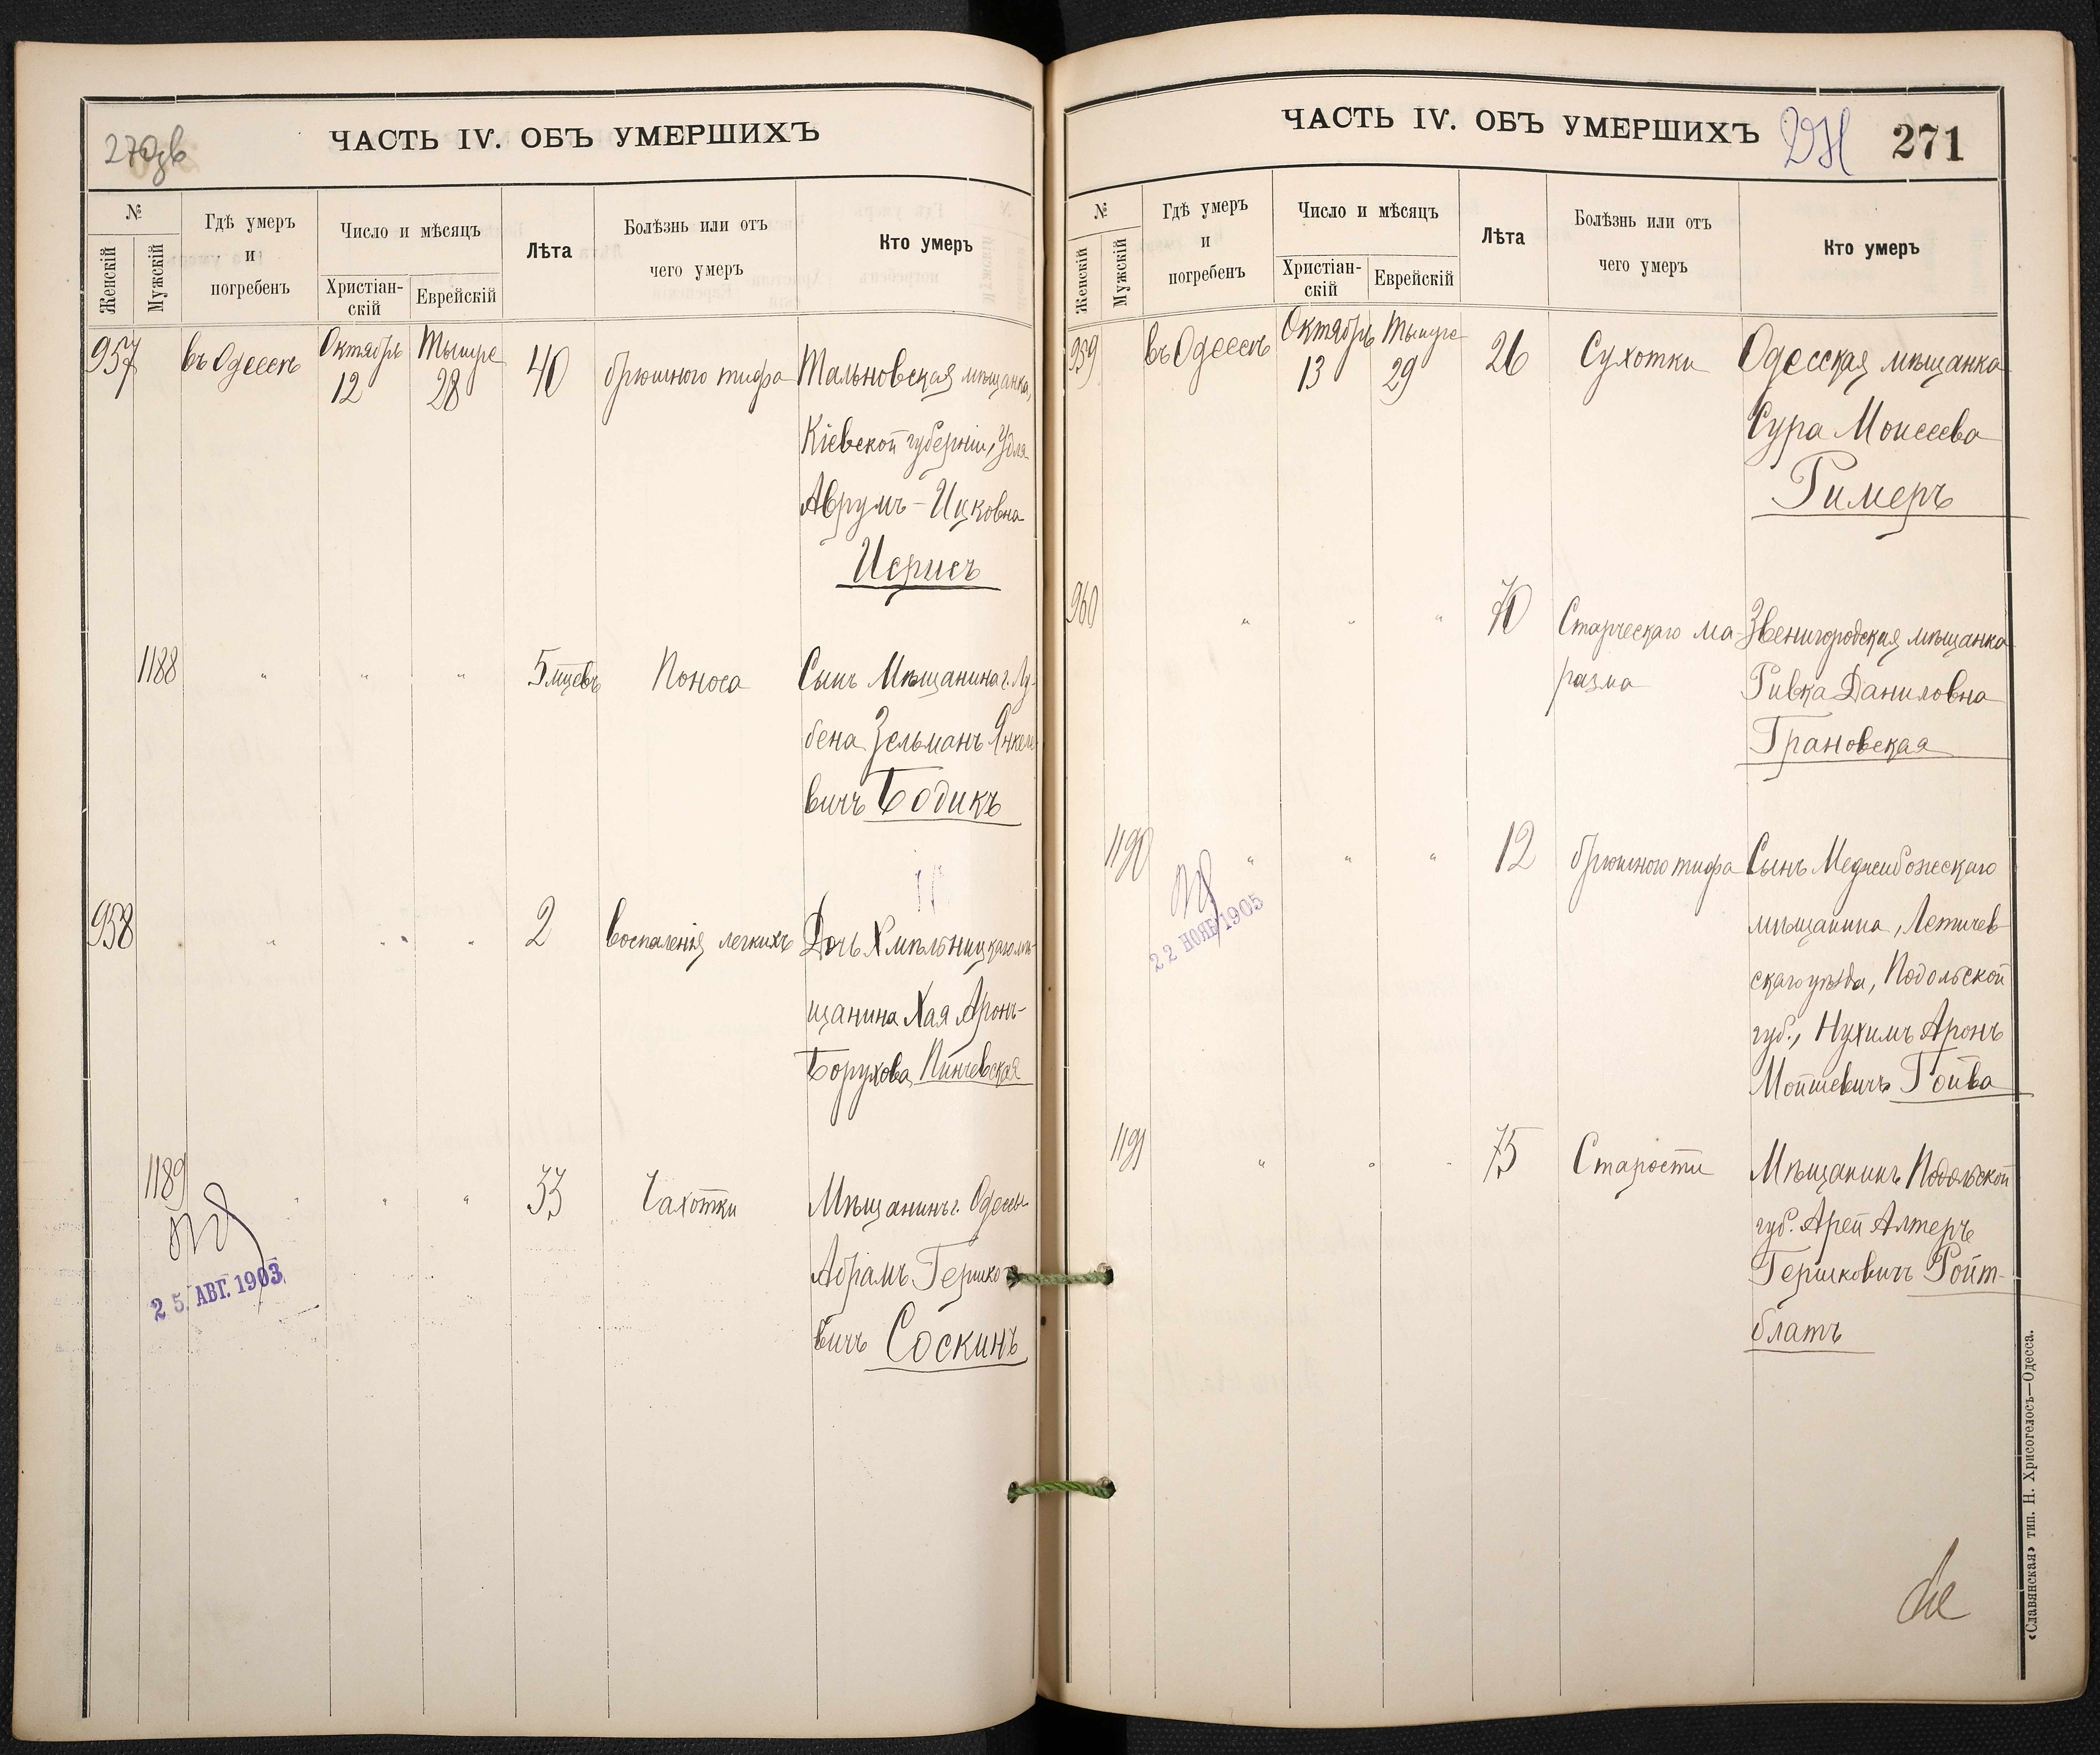 270зв
ЧАСТЬ IV. ОБЪ УМЕРШИХЪ
№
Женскій
Мужскій
Гдѣ умеръ
и
погребенъ
Число и мѣсяцъ
Христіан-
скій
Еврейскій
Лѣта
Болѣзнь или отъ
чего умеръ
Кто умеръ
957 въ Одессѣ Октябрь 12 Тышре 28 40 брюшного тифа Тальновская мѣщанка,
Кіевской губерніи, Удля
Аврумъ-Ицковна
Иерисъ
1188 " " " 5 мцевъ Поноса Сынъ Мѣщанина г. Ду-
бена Зельманъ Янкеле
вичъ Бодикъ
958 " " " 2 Воспаленія легкихъ Дочь Хмѣльницкаго мѣ-
щанина Хая Аронъ-
Борухова Пинчевская
1189 " " " 33 Чахотки Мѣщанинъ г. Одессы
Абрамъ Гершко
вичъ Соскинъ
25. АВГ. 1903
ЧАСТЬ IV. ОБЪ УМЕРШИХЪ
271
№
Женскій
Мужскій
Гдѣ умеръ
и
погребенъ
Число и мѣсяцъ
Христіан-
скій
Еврейскій
Лѣта
Болѣзнь или отъ
чего умеръ
Кто умеръ
959 въ Одессѣ Октябрь 13 Тышре 29 26 Сухотки Одесская мѣщанка
Сура Моисеева
Ример
960 " " " 70 Старческаго ма- Звенигородская мѣщанка
разма Ривка Даниловна
Грановская
1190 " " " 12 брюшного тифа Сынъ Меджибожскаго
мѣщанина, Летичев
скаго уѣзда, Подольской
губ., Нухимъ Аронъ
Мойшевичъ Гойва
22 НОЯБ 1905
1191 " " " 75 Старости Мѣщанинъ Подольской
губ. Арей Алтеръ
Гершковичъ Ройт-
блатъ
«Славянская» тип. Н. Хрисогелосъ—Одесса.